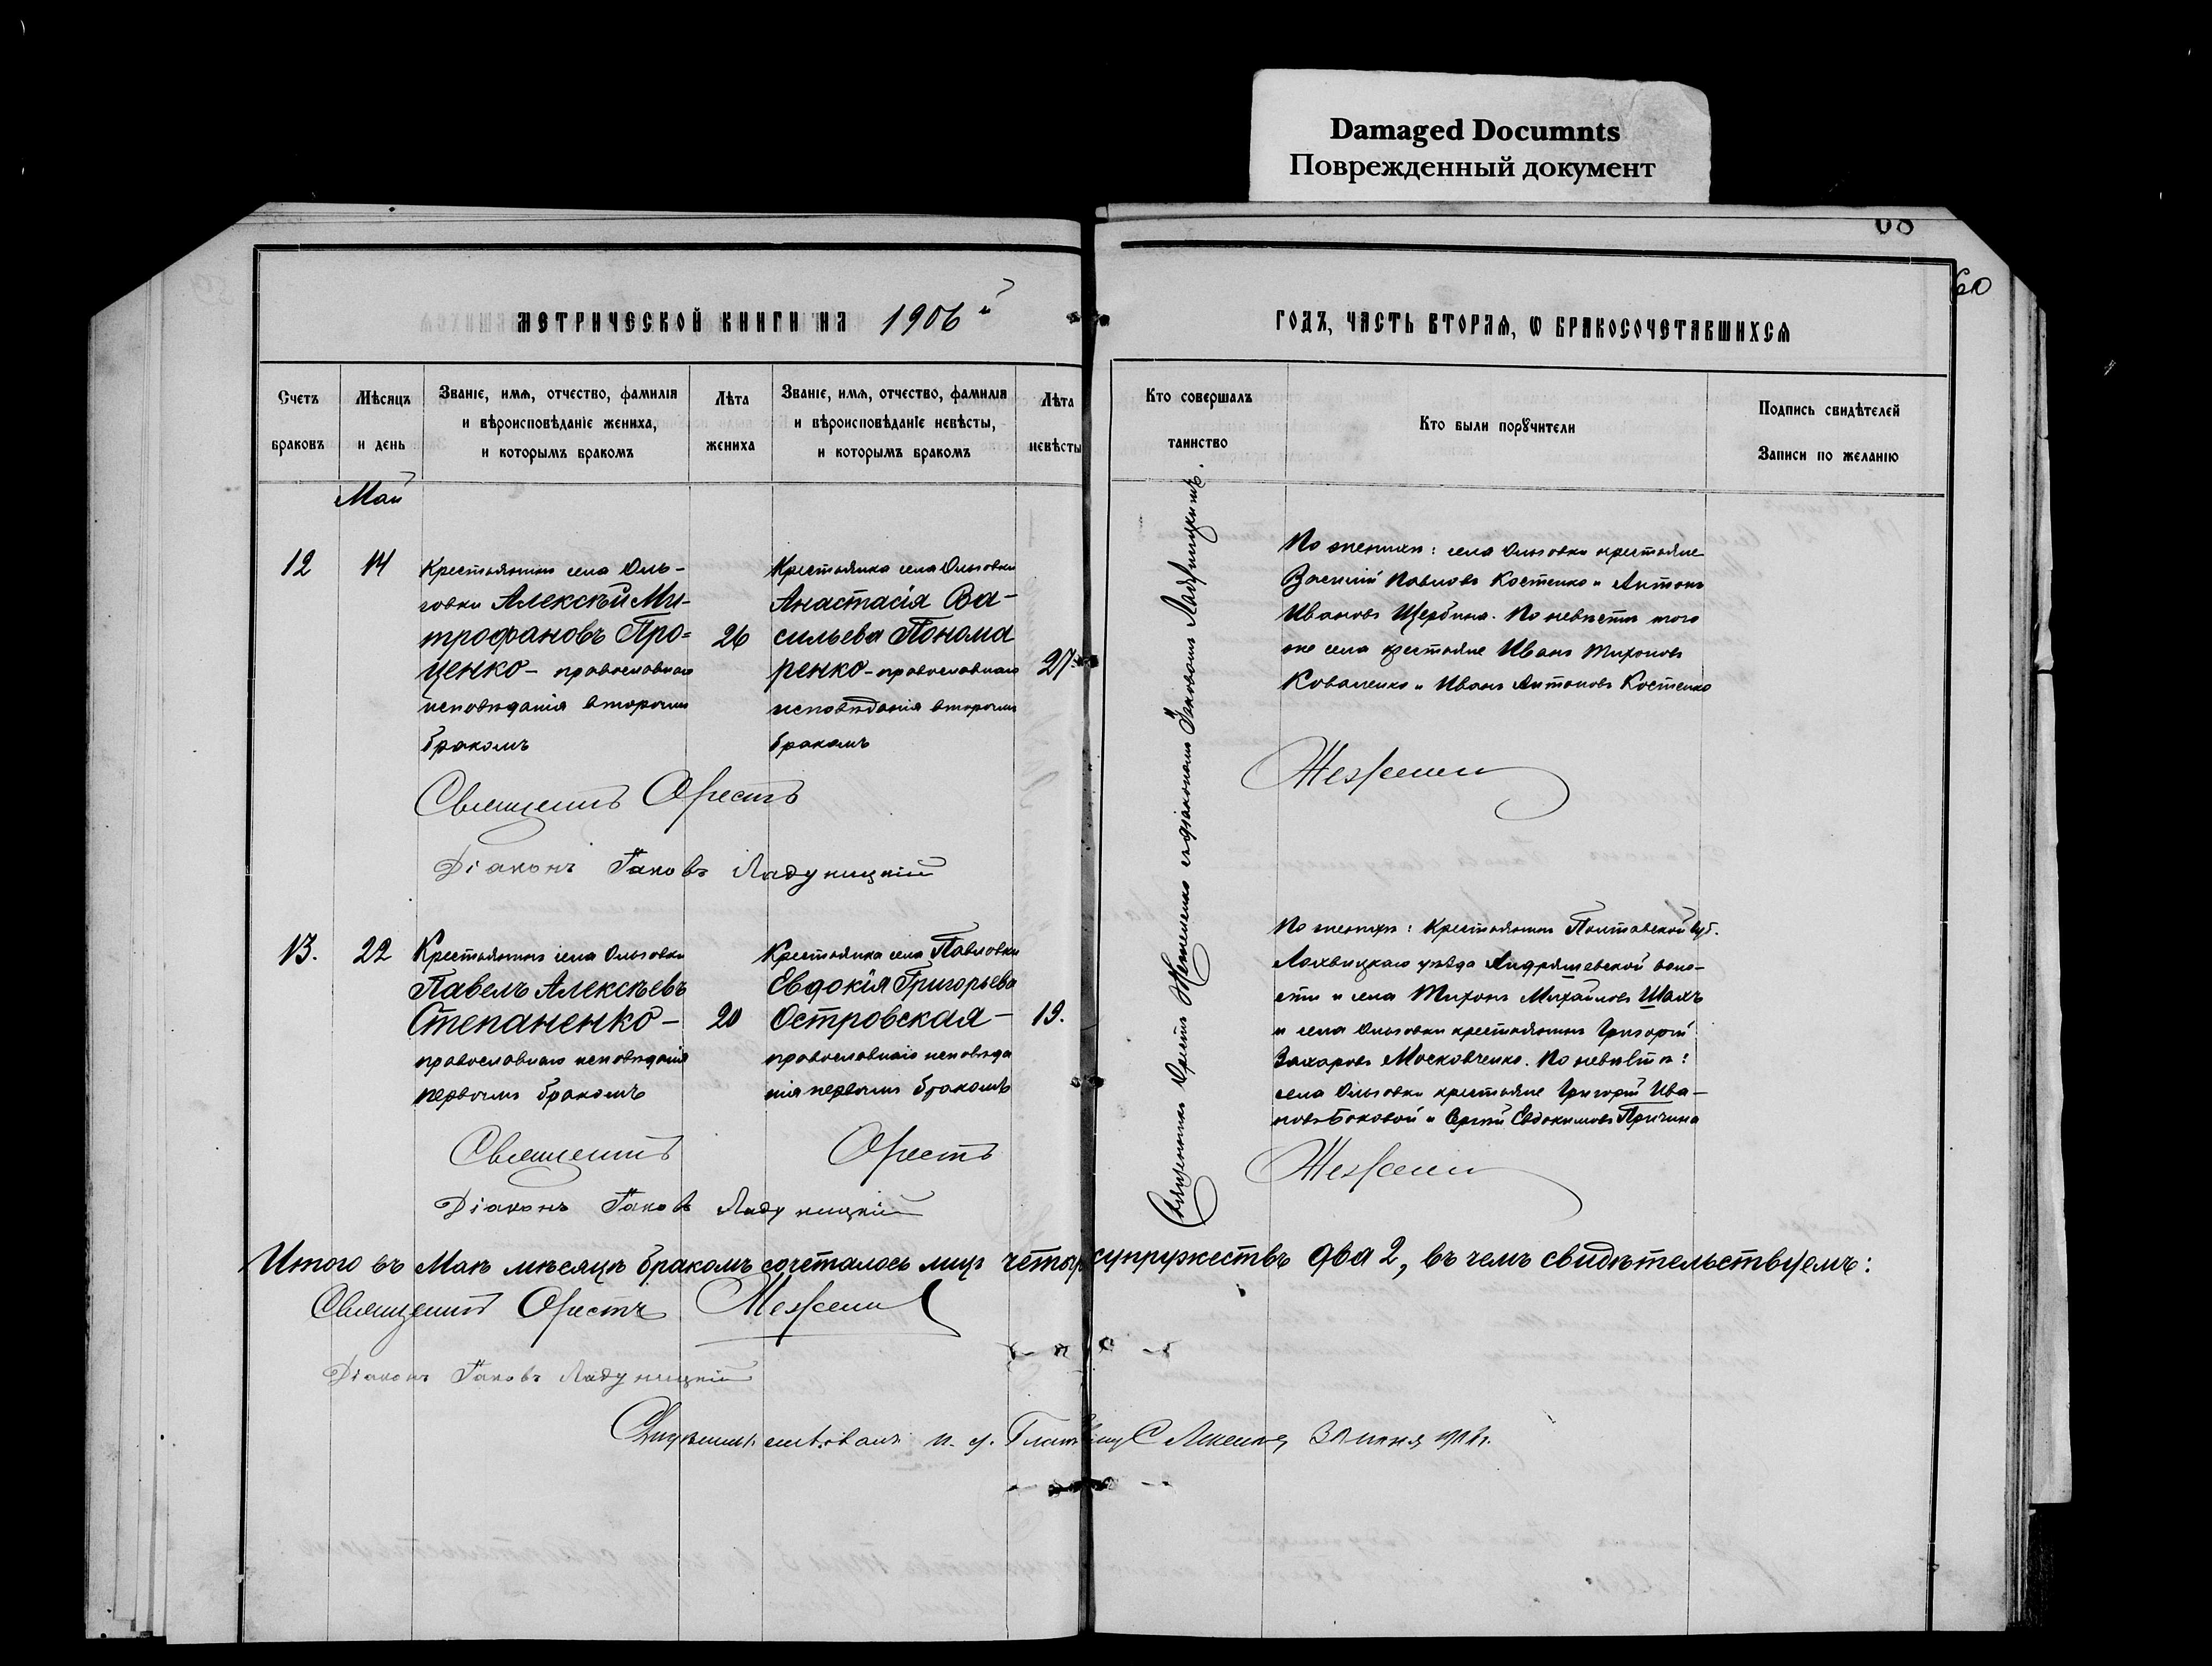 Damaged Documnts
Поврежденный документ
68
60
МЕТРИЧЕСКОЙ КНИГИ НА 1906й
ГОДЪ, ЧАСТЬ ВТОРАѦ, Ѡ БРАКОСОЧЕТАВШИХСѦ
Счетъ
браковъ
Мѣсяцъ
и день
Званіе, имя, отчество, фамилія
и вѣроисповѣданіе жениха,
и которымъ бракомъ
Лѣта
жениха
Званіе, имя, отчество, фамилія
и вѣроисповѣданіе невѣсты,
и которымъ бракомъ
Лѣта
невѣсты
Кто совершалъ
таинство
Кто были порꙋчители
Подпись свидѣтелей
Записи по желанію
Май
12
14
Крестьянинъ села Оль-
говки Алексѣй Ми-
трофановъ Про-
ценко - православнаго
исповѣданія вторымъ
бракомъ
26
Крестьянка села Ольговки
Анастасія Ва-
сильева Понома
ренко - православнаго
исповѣданія вторымъ
бракомъ
27
Священникъ Орестъ Жеженко съ діакономъ Іаковомъ Ладуницкимъ.
По женихѣ: села Ольговки крестьяне
Василій Павловъ Костенко и Антонъ
Ивановъ Щербина. По невѣстѣ того
же села крестьяне Иванъ Тихоновъ
Коваленко и Иванъ Антоновъ Костенко
Священникъ Орестъ
Діаконъ Іаковъ Ладуницкій
13.
22
Крестьянинъ села Ольговки
Павелъ Алексѣевъ
Степаненко -
православнаго исповѣданія
первымъ бракомъ
20
Крестьянка села Павловки
Евдокія Григорьева
Островская -
православнаго исповѣда
нія первымъ бракомъ
19.
По женихѣ: Крестьянинъ Полтавской губ.
Лохвицкаго уѣзда Андріяшевской воло-
сти и села Тихонъ Михайловъ Шахъ
и села Ольговки крестьянинъ Григорій
Захаровъ Московченко. По невѣстѣ:
села Ольговки крестьяне Григорій Ива-
новъ Боковой и Сергій Евдокимовъ Причина
Священникъ Орестъ
Діаконъ Іаковъ Ладуницкій
Итого въ Маѣ мѣсяцѣ бракомъ сочеталось лицъ четыр супружествъ два 2, въ чемъ свидѣтельствуемъ:
Священникъ Орестъ
Діаконъ Іаковъ Ладуницкій